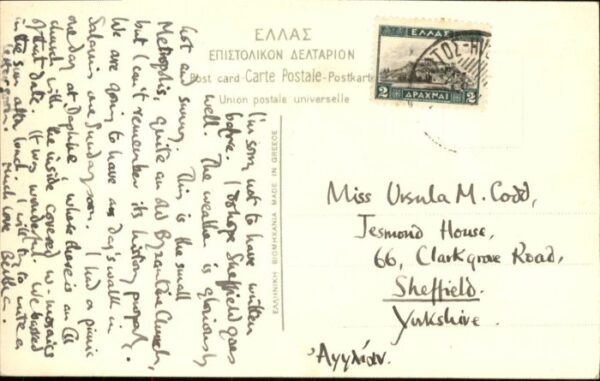 ΕΛΛΑΣ
ΕΠΙΣΤΟΛΙΚΟΝ ΔΕΛΤΑΡΙΟΝ
Post card-Carte Postale-Postkarte
Union postale universelle
ΕΛΛΑΣ
2 ΔΡΑΧΜΑΙ 2
ΕΛΛΗΝΙΚΗ ΒΙΟΜΗΧΑΝΙΑ MADE IN GREECE
I'm sorry not to have written
before. I do hope Sheffield goes
well. The weather is gloriously
hot and sunny. This is the small
Metropolis, quite an old Byzantine Church,
but I can't remember its history properly.
We are going to have a day's walk in
Salamis one Sunday soon. I had a picnic
one day at Daphne, where there is an
church with the inside covered w. mosaics
of that date. It was wonderful. We basked
in the sun after lunch. I will try to write a
letter soon. Much love
Miss Ursula M. Codd,
Jesmond House,
66, Clarkgrove Road,
Sheffield.
Yorkshire.
Ἀγγλίαν.